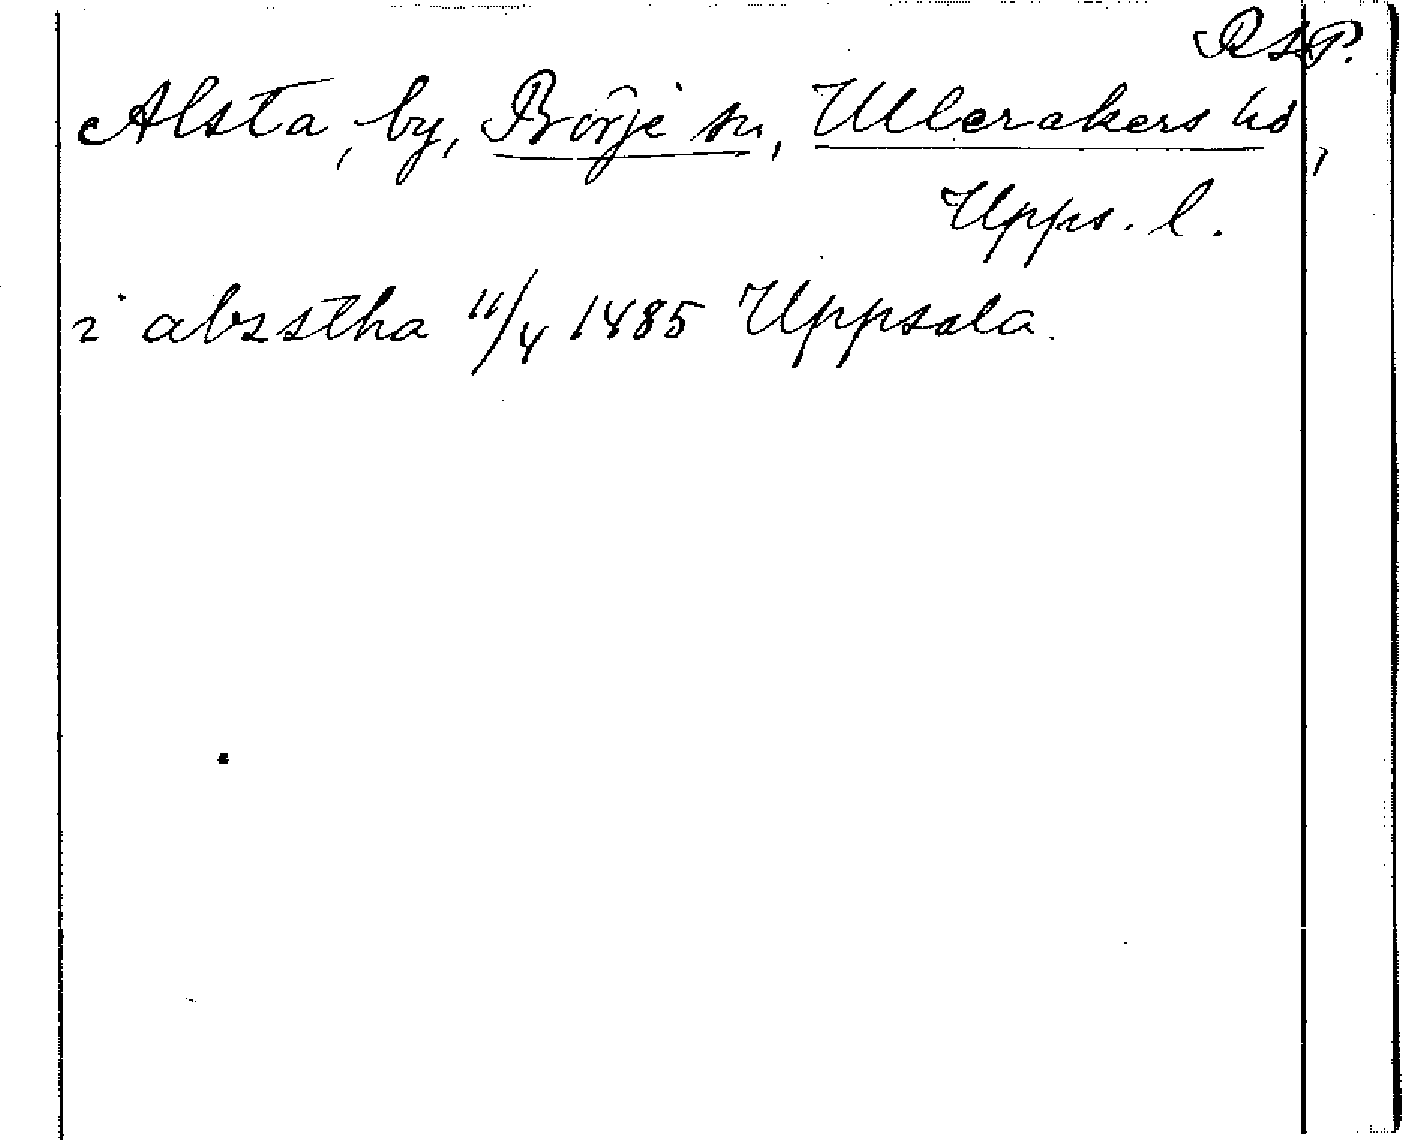 RSP.
Alsta, by, Börje sn, Ulleråkers hd,
Upps. l.
i alzstha 11/4 1485 Uppsala.